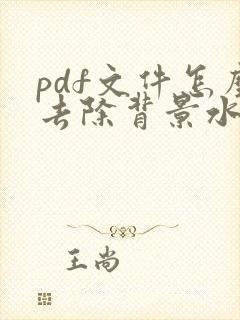 pdf文件怎
去除背景水
王尚